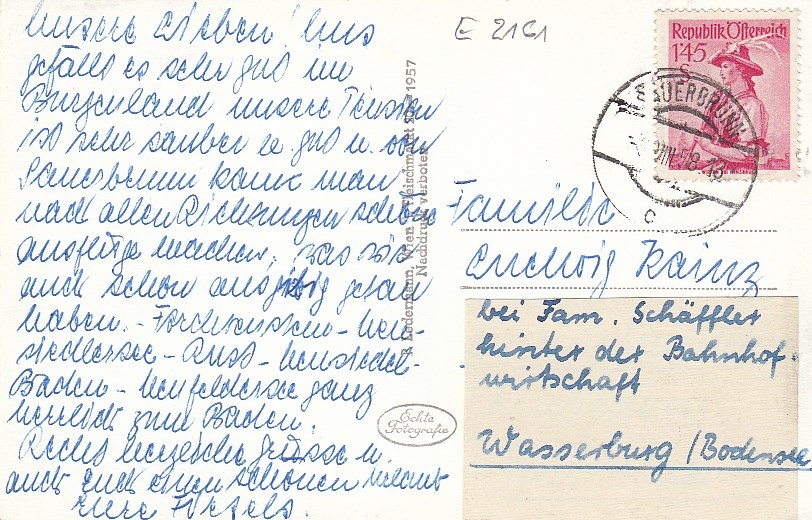 Unsere Lieben! Uns
gefällt es sehr gut im
Burgenland unsere Pension
ist sehr sauber u. gut u. von
Sauerbrunn kann man
nach allen Richtungen schöne
Ausflüge machen, was wir
auch schon ausgibig getan
haben. - Forchtenstein - Neu-
siedlersee - Rust - Neusiedel -
Baden - Neufeldersee ganz
herrlich zum Baden.
Recht herzliche Grüsse u.
auch Euch einen schönen Urlaub
Eure
E 2161
Republik Österreich
1'45
S
SAUERBRUNN
c
Ledermann, Wien I, Fleischmarkt 20 1957
Nachdruck verboten
Echte
Fotografie
Familie
Ludwig Kainz
bei Fam. Schäffler
hinter der Bahnhof-
wirtschaft
Wasserburg /Bodensee